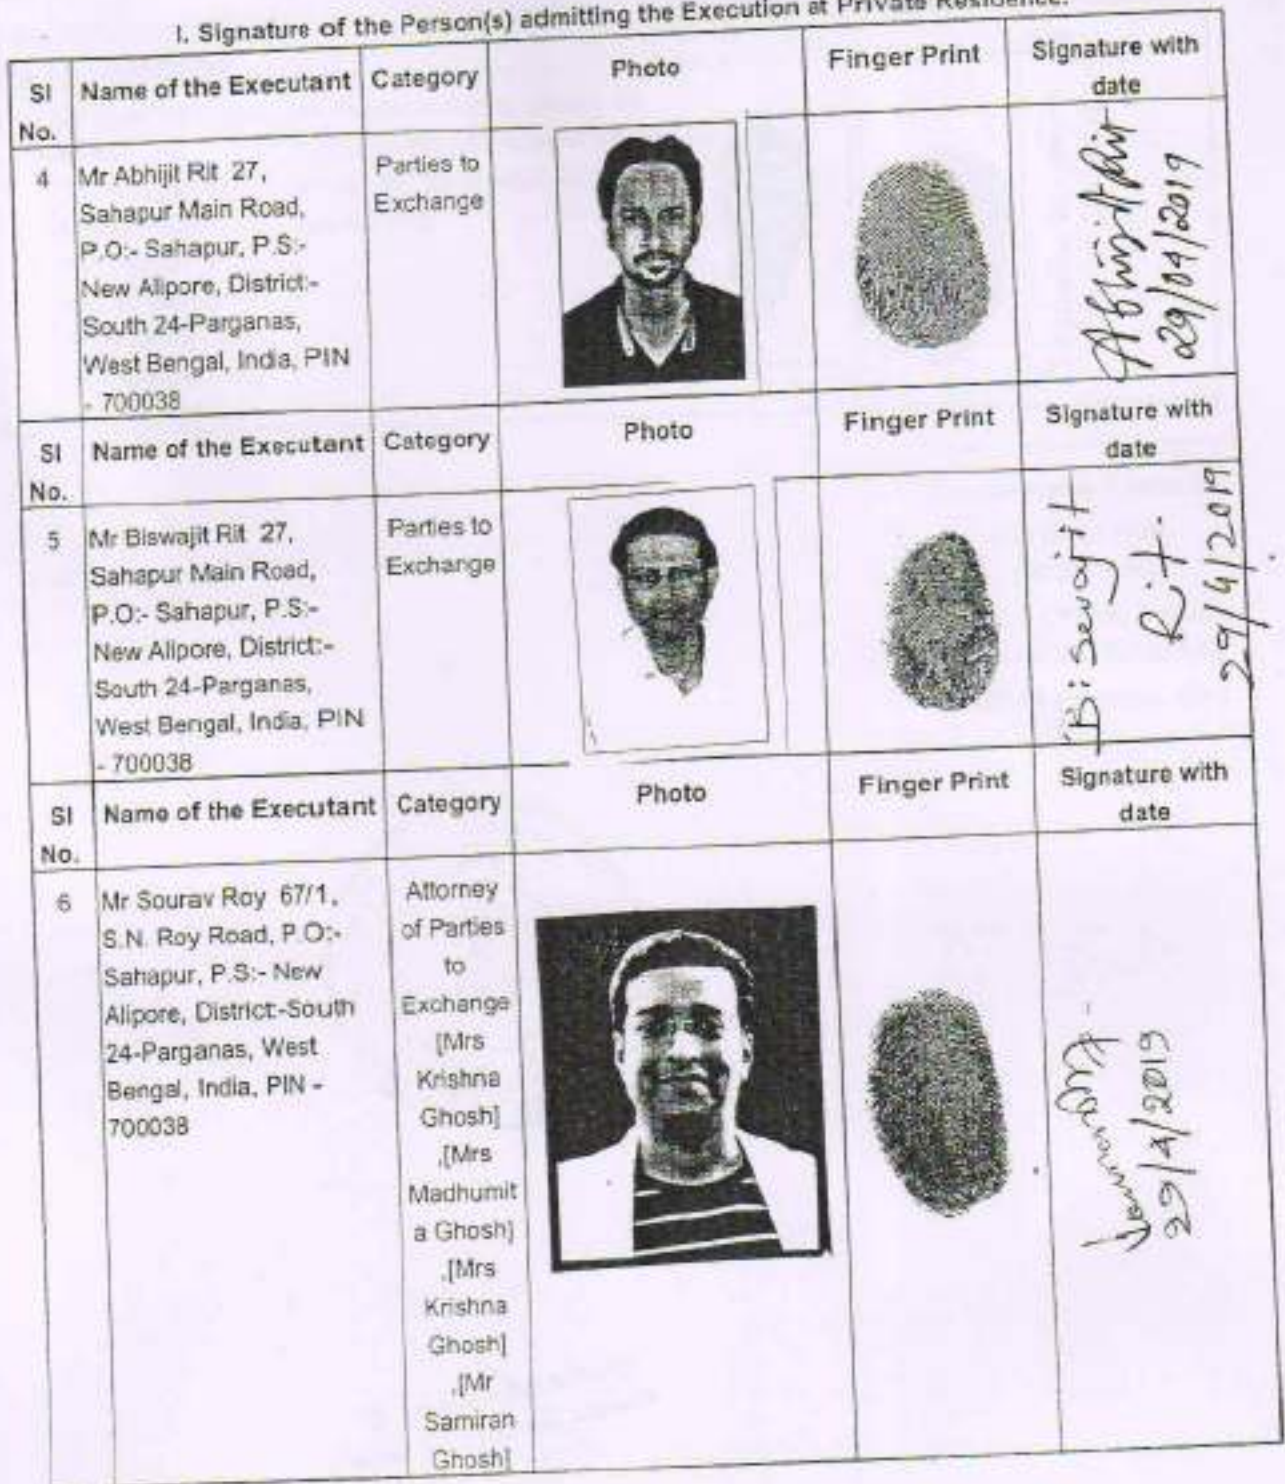 I. Signature of the Person(s) admitting the Execution at Private Residence.
Sl No.
Name of the Executant
Category
Photo
Finger Print
Signature with date
4
Mr Abhijit Rit 27,
Sahapur Main Road,
P.O:- Sahapur, P.S:-
New Alipore, District:-
South 24-Parganas,
West Bengal, India, PIN
- 700038
Parties to
Exchange
Abhijit Rit
29/04/2019
Sl No.
Name of the Executant
Category
Photo
Finger Print
Signature with date
5
Mr Biswajit Rit 27,
Sahapur Main Road,
P.O:- Sahapur, P.S:-
New Alipore, District:-
South 24-Parganas,
West Bengal, India, PIN
- 700038
Parties to
Exchange
Biswajit
Rit.
29/4/2019
Sl No.
Name of the Executant
Category
Photo
Finger Print
Signature with date
6
Mr Sourav Roy 67/1,
S.N. Roy Road, P.O:-
Sahapur, P.S:- New
Alipore, District:-South
24-Parganas, West
Bengal, India, PIN -
700038
Attorney
of Parties
to
Exchange
[Mrs
Krishna
Ghosh]
,[Mrs
Madhumit
a Ghosh]
,[Mrs
Krishna
Ghosh]
,[Mr
Samiran
Ghosh]
29/4/2019